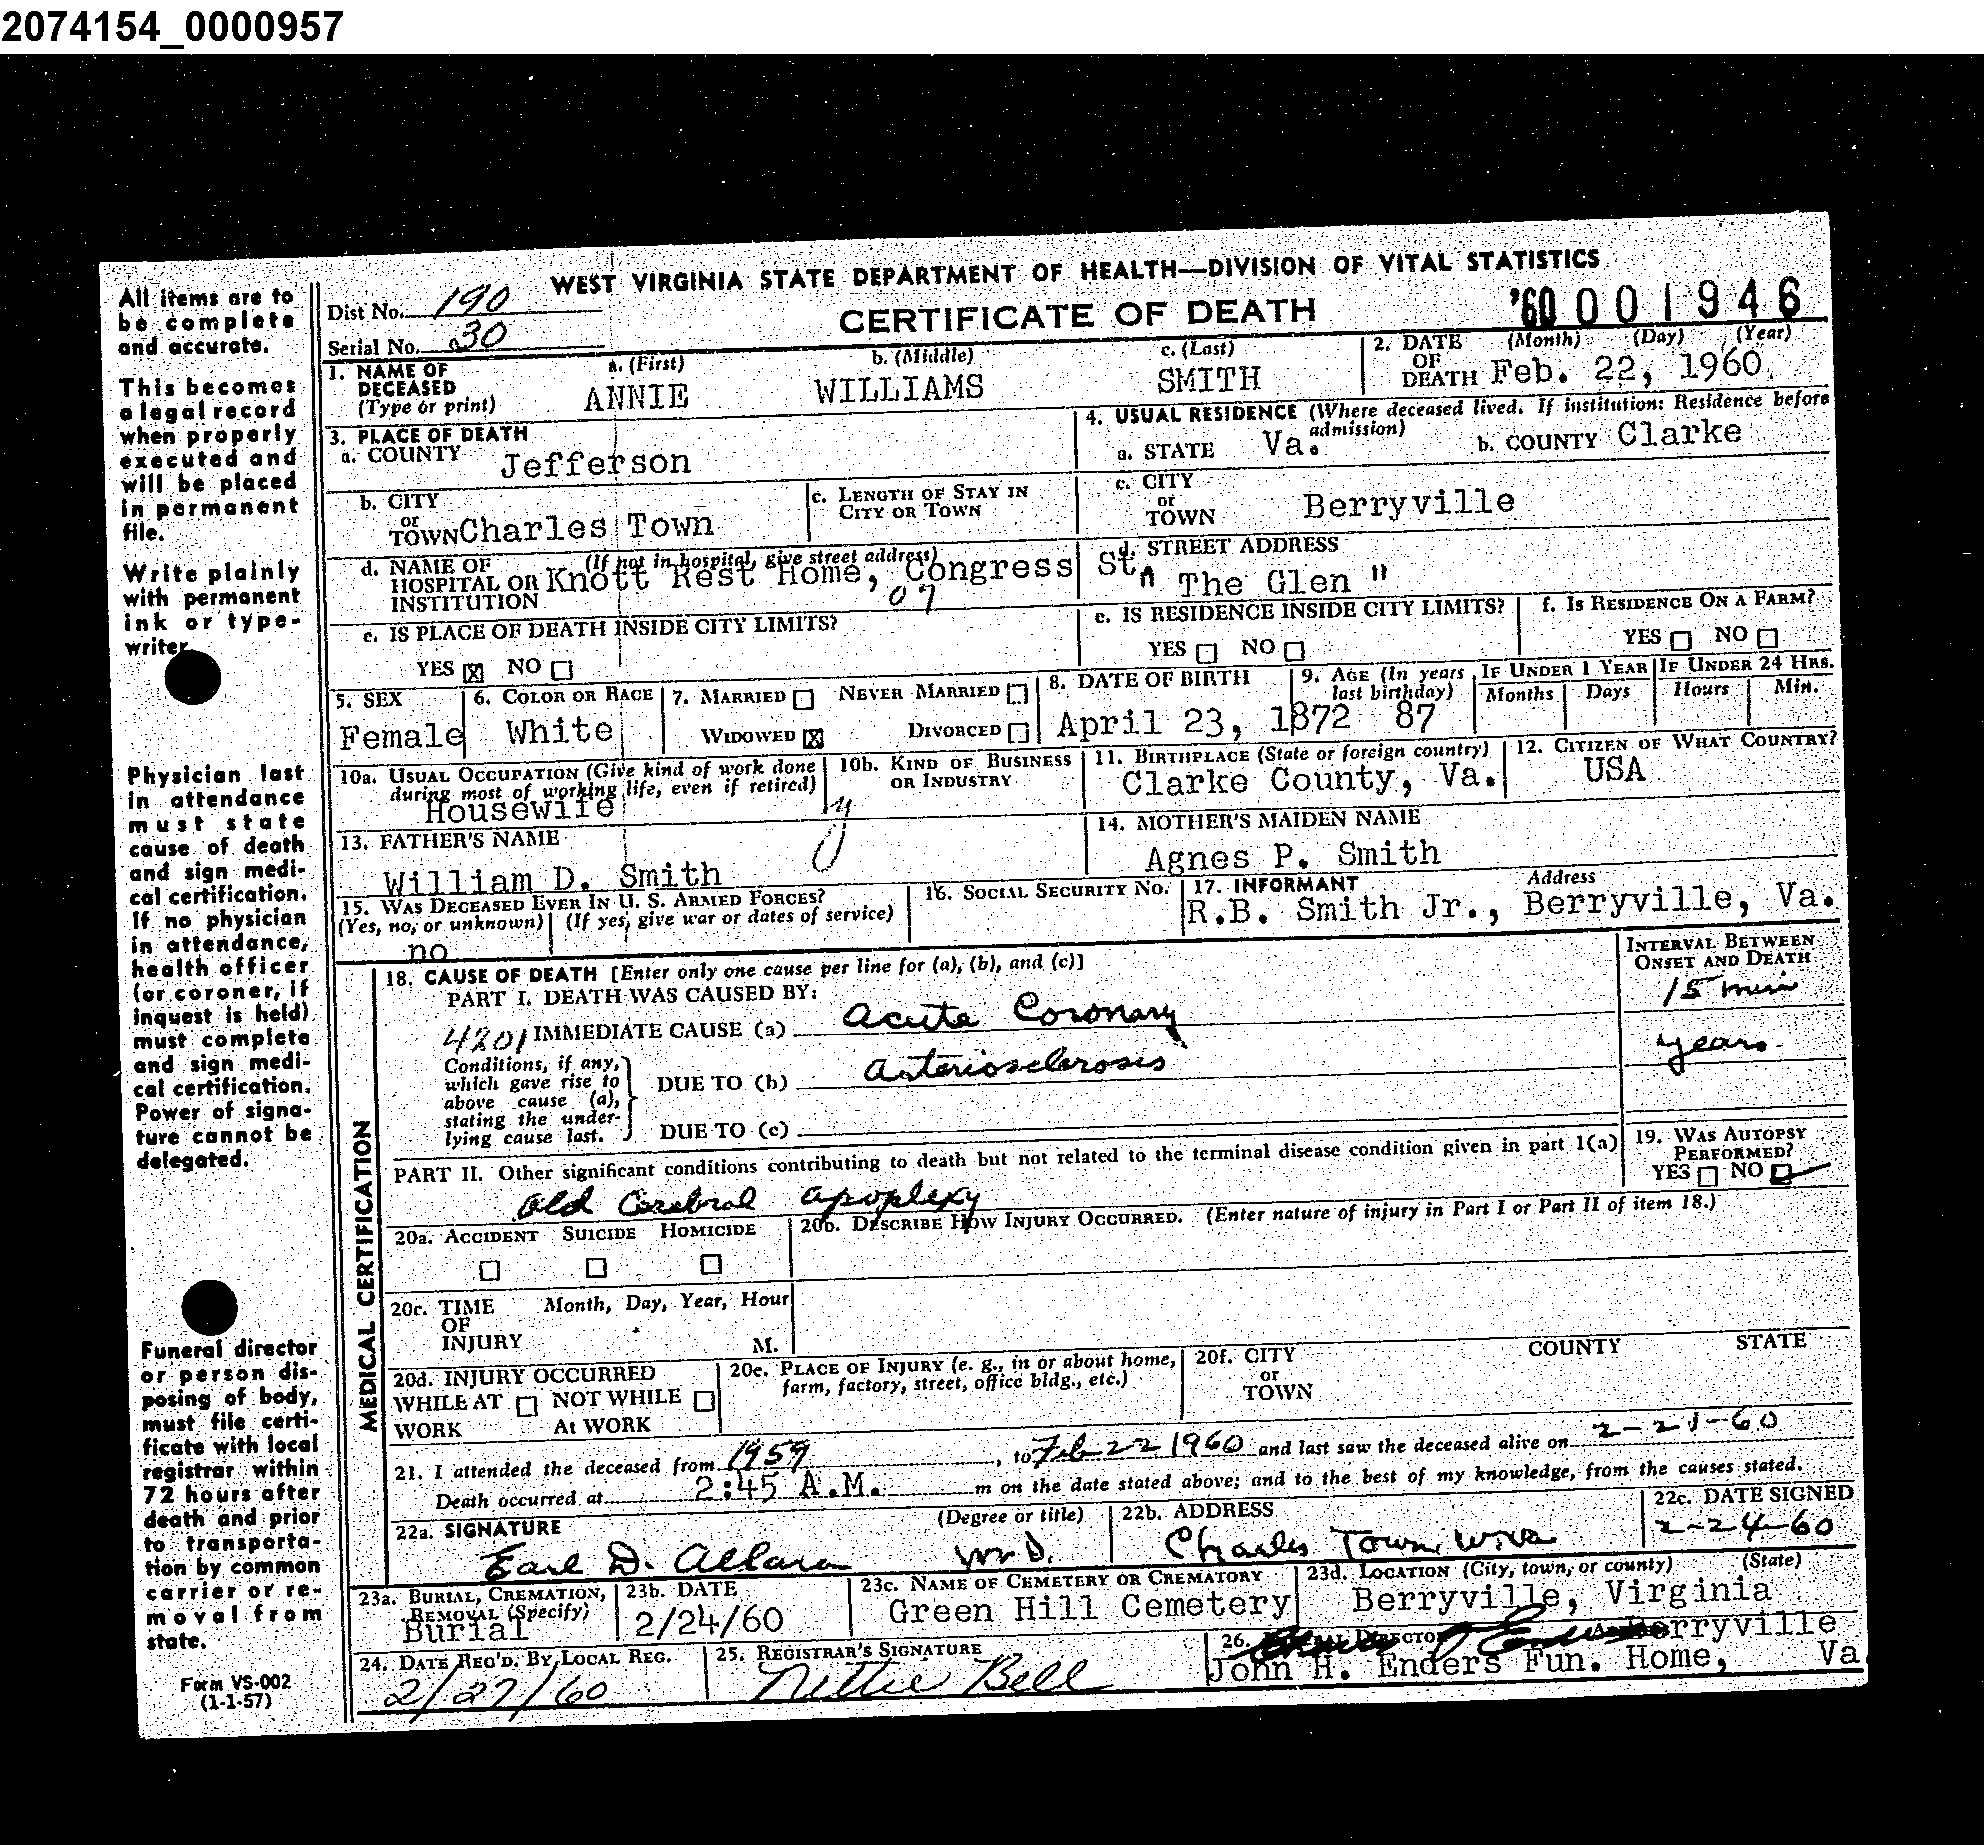 2074154_0000957
WEST VIRGINIA STATE DEPARTMENT OF HEALTH—DIVISION OF VITAL STATISTICS
CERTIFICATE OF DEATH
'60 001946
Dist No. 190
Serial No. 30
1. NAME OF DECEASED (Type or print) a. (First) ANNIE b. (Middle) WILLIAMS c. (Last) SMITH
2. DATE OF DEATH (Month) (Day) (Year) Feb. 22, 1960
3. PLACE OF DEATH
a. COUNTY Jefferson
b. CITY or TOWN Charles Town
c. LENGTH OF STAY IN CITY OR TOWN
d. NAME OF HOSPITAL OR INSTITUTION (If not in hospital, give street address) Knott Rest Home, Congress St.
07
e. IS PLACE OF DEATH INSIDE CITY LIMITS?
YES ☒ NO ☐
4. USUAL RESIDENCE (Where deceased lived. If institution: Residence before admission)
a. STATE Va. b. COUNTY Clarke
c. CITY or TOWN Berryville
d. STREET ADDRESS
" The Glen "
e. IS RESIDENCE INSIDE CITY LIMITS?
YES ☐ NO ☐
f. IS RESIDENCE ON A FARM?
YES ☐ NO ☐
5. SEX Female
6. COLOR OR RACE White
7. MARRIED ☐ NEVER MARRIED ☐
WIDOWED ☒ DIVORCED ☐
8. DATE OF BIRTH April 23, 1872
9. AGE (In years last birthday) 87
IF UNDER 1 YEAR Months Days
IF UNDER 24 HRS. Hours Min.
10a. USUAL OCCUPATION (Give kind of work done during most of working life, even if retired) Housewife
10b. KIND OF BUSINESS OR INDUSTRY
11. BIRTHPLACE (State or foreign country) Clarke County, Va.
12. CITIZEN OF WHAT COUNTRY? USA
13. FATHER'S NAME William D. Smith
14. MOTHER'S MAIDEN NAME Agnes P. Smith
15. WAS DECEASED EVER IN U. S. ARMED FORCES?
(Yes, no, or unknown) (If yes, give war or dates of service)
no
16. SOCIAL SECURITY NO.
17. INFORMANT Address
R.B. Smith Jr., Berryville, Va.
MEDICAL CERTIFICATION
18. CAUSE OF DEATH [Enter only one cause per line for (a), (b), and (c)]
INTERVAL BETWEEN ONSET AND DEATH
PART I. DEATH WAS CAUSED BY:
4201 IMMEDIATE CAUSE (a) Acute Coronary 15 min
Conditions, if any, which gave rise to above cause (a), stating the underlying cause last.
DUE TO (b) Arteriosclerosis years
DUE TO (c)
PART II. Other significant conditions contributing to death but not related to the terminal disease condition given in part 1(a)
Old Cerebral apoplexy
19. WAS AUTOPSY PERFORMED?
YES ☐ NO ☑
20a. ACCIDENT SUICIDE HOMICIDE
☐ ☐ ☐
20b. DESCRIBE HOW INJURY OCCURRED. (Enter nature of injury in Part I or Part II of item 18.)
20c. TIME OF INJURY Month, Day, Year, Hour M.
20d. INJURY OCCURRED
WHILE AT WORK ☐ NOT WHILE At WORK ☐
20e. PLACE OF INJURY (e. g., in or about home, farm, factory, street, office bldg., etc.)
20f. CITY or TOWN COUNTY STATE
21. I attended the deceased from 1959, to Feb 22 1960 and last saw the deceased alive on 2-21-60
Death occurred at 2:45 A.M. m on the date stated above; and to the best of my knowledge, from the causes stated.
22a. SIGNATURE (Degree or title) Earl D. Allara M.D.
22b. ADDRESS Charles Town W.Va
22c. DATE SIGNED 2-24-60
23a. BURIAL, CREMATION, REMOVAL (Specify) Burial
23b. DATE 2/24/60
23c. NAME OF CEMETERY OR CREMATORY Green Hill Cemetery
23d. LOCATION (City, town, or county) (State) Berryville, Virginia
24. DATE REC'D. BY LOCAL REG. 2/27/60
25. REGISTRAR'S SIGNATURE Nettie Bell
26. DIRECTOR Berryville
John H. Enders Fun. Home, Va
All items are to be complete and accurate.
This becomes a legal record when properly executed and will be placed in permanent file.
Write plainly with permanent ink or typewriter
Physician last in attendance must state cause of death and sign medical certification. If no physician in attendance, health officer (or coroner, if inquest is held) must complete and sign medical certification. Power of signature cannot be delegated.
Funeral director or person disposing of body, must file certificate with local registrar within 72 hours after death and prior to transportation by common carrier or removal from state.
Form VS-002
(1-1-57)